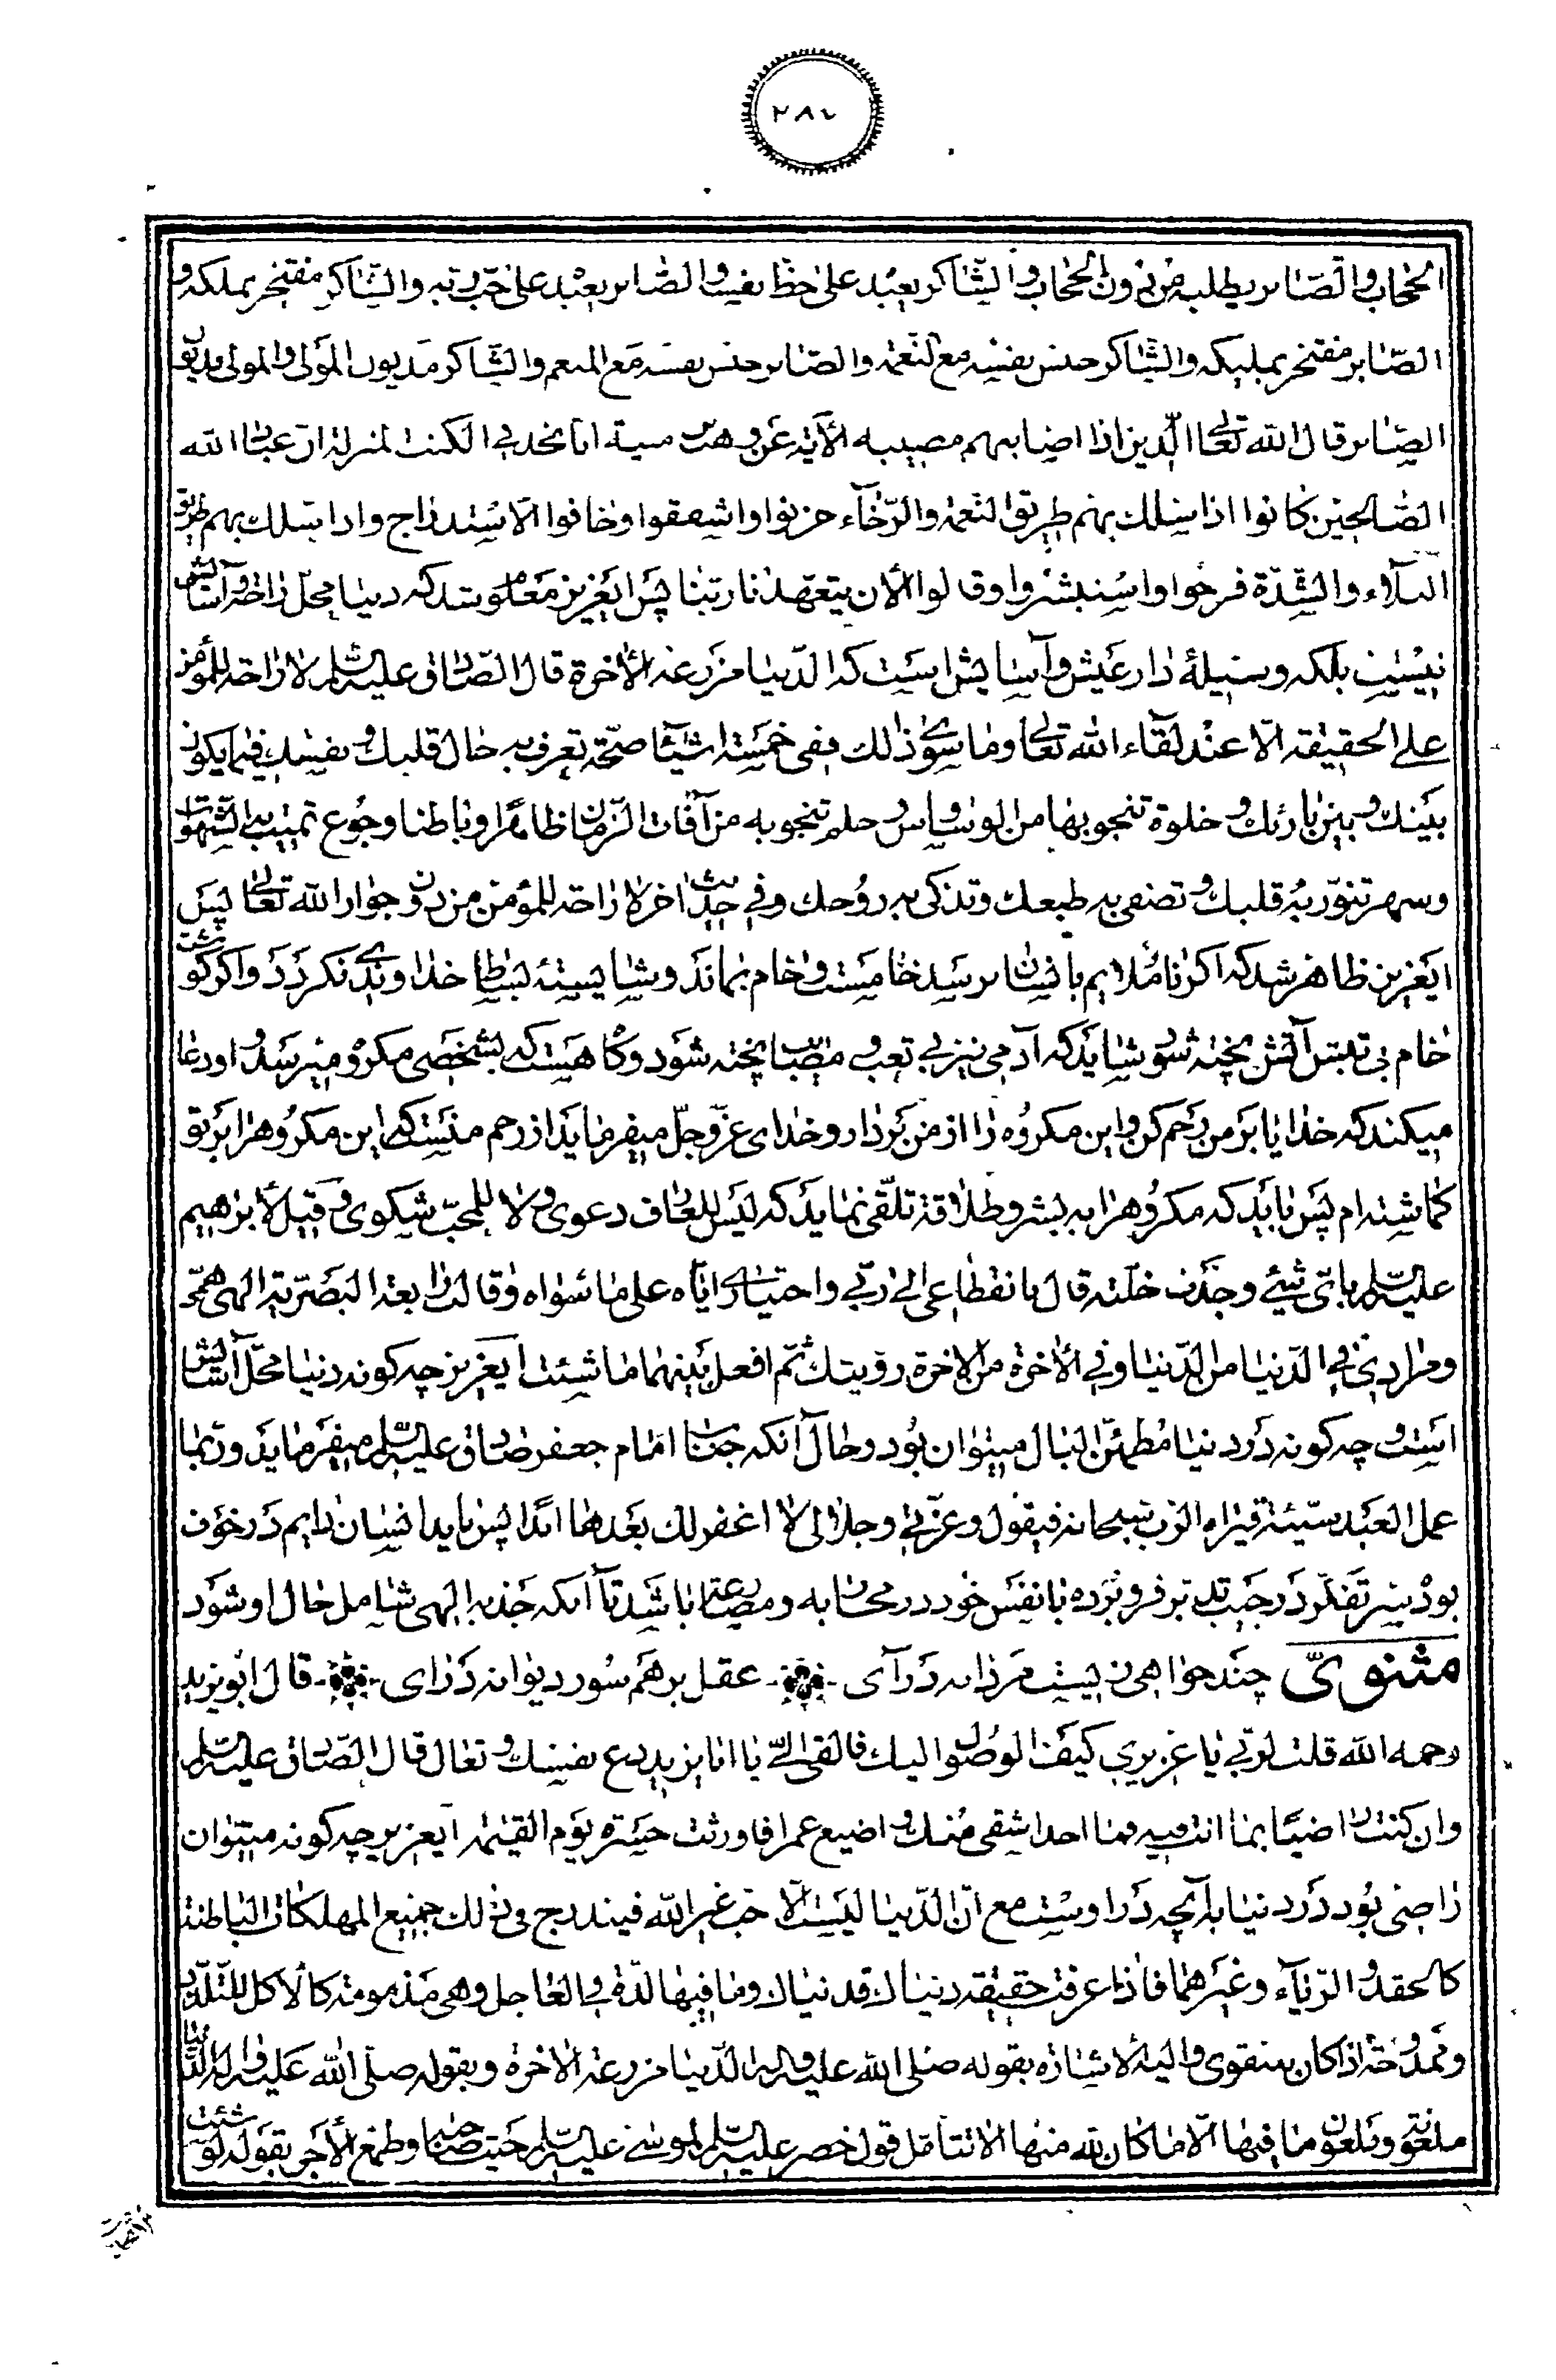 الحجاب والصّابر يطلبه من دون الحجاب والشّاكر يعبد على حظّ نفسه والصّابر يعبد على حبّ ربّه والشّاكر مفتخر بملكه و
الصّابر مفتخر بمليكه والشّاكر حبس نفسه مع النّعمة والصّابر حبس نفسه مع المنعم والشّاكر مديون المولى والمولى مديون
الصّابر قال الله تعالى الّذين اذا اصابتهم مصيبه الآية عن وهب منبه انا نجد فى الكتب المنزلة ان عباد الله
الصّالحين كانوا اذا سلك بهم طريق النّعمة والرّخآء حزنوا واشفقوا وخافوا الاستدراج واذا سلك بهم طريق
البلآء والشّدّة فرحوا واستبشروا وقالوا الآن يتعهّدنا ربّنا پس ايعزيز معلوم شد كه دنيا محلّ راحة وآسايش
نيست بلكه وسيلهٔ دار عيش وآسايش است كه الدّنيا مزرعة الآخرة قال الصّادق عليه السّلم لا راحة للمؤمن
على الحقيقة الّا عند لقآء الله تعالى وما سوى ذلك ففى خمسة اشيآ صحّة تعرف به حال قلبك ونفسك فيما يكون
بينك وبين بارئك وخلوة تنجو بها من الوسواس وحلم تنجو به من آفات الزّمان ظاهرا وباطنا وجوع تميت به الشّهوات
وسهر تنوّر به قلبك وتصفى به طبعك وتذكى به روحك وفى حديث اخر لا راحة للمؤمن من دون جوار الله تعالى پس
ايعزيز ظاهر شد كه اگر ناملايم بانسان نرسد خامست وخام بماند وشايستهٔ بساط خداوندى نگردد واگر گوشت
خام بى تبش آتش پخته شود شايد كه آدمى نيز بى تعب ومصائب پخته شود وگاه هست كه بشخصى مكروه ميرسد واو دعا
ميكند كه خدايا بر من رحم كن واين مكروه را از من بردار وخداى عزّوجلّ ميفرمايد از رحم منست كه اين مكروه را بر تو
گماشته ام پس بايد كه مكروه را به بشر وطلاقة تلقّى نمايد كه ليس للعارف دعوى ولا للمحبّ شكوى وقيل لأبرهيم
عليه السّلم باىّ شيئ وجدت خلّته قال بانقطاعى الى ربّى واختيارى ايّاه على ما سواه وقالت رابعة البصريّة الهى همّى
ومرادى فى الدّنيا من الدّنيا وفى الآخرة من الاخرة رؤيتك ثمّ افعل بينهما ما شئت ايعزيز چه گونه دنيا محلّ آسايش
است وچه گونه در دنيا مطمئنّ البال ميتوان بود وحال آنكه جناب امام جعفر صادق عليه السّلم ميفرمايد وربّما
عمل العبد سيّئة فيراه الرّب سبحانه فيقول وعزّتى وجلالى لا اغفر لك بعدها ابدا پس بايد انسان دايم در خوف
بود وسر تفكّر در جيب تدبر فرو برده با نفس خود در محاسبه ومصارعة باشد تا آنكه جذبهٔ الهى شامل حال او شود
مثنوىّ چند خواهى زيست مردانه درآى عقل برهم سوز ديوانه دراى قال ابويزيد
رحمه الله قلت لربّى يا عزيزى كيف الوصول اليك فالقى الىّ يا ابا يزيد دع نفسك وتعال قال الصّادق عليه السّلم
وان كنت راضيا بما انت فيه فما احد اشقى منك واضيع عمرا فاورثت حسرة يوم القيمة ايعزيز چه گونه ميتوان
راضى بود در دنيا بآنچه در اوست مع انّ الدّنيا ليست الّا حب غير الله فيندرج فى ذلك جميع المهلكات الباطنة
كالحقد والرّيآء وغيرهما فاذا عرفت حقيقة دنياك فدنياك وما فيها لذّة فى العاجل وهى مذمومة كالاكل للتّلذّذ
وممدوحة اذا كان للتقوى واليه الاشارة بقوله صلى الله عليه وآله الدّنيا مزرعة الاخرة وبقوله صلّى الله عليه وآله الدّنيا
ملعونة وملعون ما فيها الّا ما كان لله منها الا تتأمّل قول خضر عليه السّلم لموسى عليه السّلم حيث صاحبه وطمع الأجر بقوله لو شئت